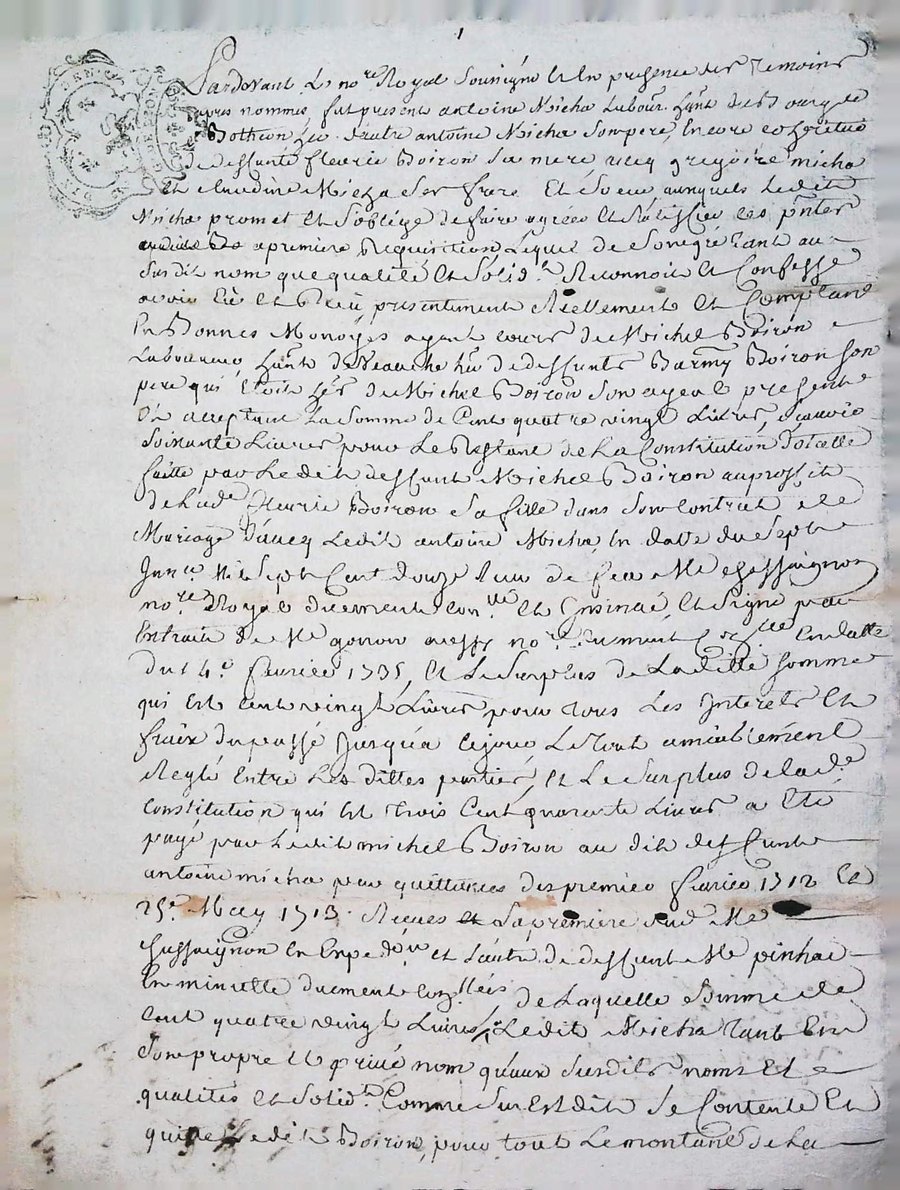 1
Pardevant Le no.re Royal Sousigné Et En presence des Temoins
apres nommes, fut present antoine Micha Labour. hant du Bourg de
Botheon fils d'autre antoine Micha Son pere, Encore coheritier
de deffunte fleurie Boiron Sa mere avecq gregoire micha
Et claudine Micha Ses frere Et Soeur auxquels Ledit
Micha promet Et S'oblige de faire agréer Et Ratiffier Les pntes
a premiere Requisition, Lequel de Son gré tant au
Susdit nom que qualité Et Solid.t Reconnoit Et Confesse
avoir Eü Et Reçü presentement Réellement Et Comptant
En Bonnes Monoyes ayant cours de Michel Boiron
Laboureur hant de Veauche her de deffunt Barmy Boiron Son
pere qui Etoit her de Michel Boiron Son ayeul present
Et acceptant La Somme de Cent quatre vingt Livres, Sçavoir
Soixante Livres pour Le Restant de La Constitution Dotalle
faitte par Ledit deffunt Michel Boiron au proffit
de Lad.e fleurie Boiron Sa fille dans Son Contrat de
Mariage d'avecq Ledit antoine Micha, En datte du Sept
Janv.er Mil Sept Cent Douze Receu de feu M.e chassaignon
no.re Royal duement Con.llé Et Insinué Et Signé par
Extrait de M.e gonon aussy no.re En datte
du 14.e fevrier 1735, Et Le Surplus de Laditte Somme
qui Est Cent vingt Livres pour tous Les Interets Et
fraix du passé Jusqu'a Cejour Le tout amiablement
Reglé Entre Les dittes parties, Et Le Surplus de lad.e
Constitution qui Est trois Cent quarante Livres a Eté
payé par Ledit michel Boiron au dit deffunt
antoine micha par quittances des premier fevrier 1712 Et
25.e May 1713. Receues La premiere dud. M.e
Chassaignon En Expedi.on et L'autre de deffunt M.e pinhac
En minutte duement Con.llées de Laquelle Somme de
Cent quatre vingt Livres Ledit Micha tant En
Son propre Et privé nom qu'aux Susdits noms Et
qualités Et Solid.t Comme Sus Est dit Se Contente Et
quitte Ledit Boiron, pour tout Le montant de La